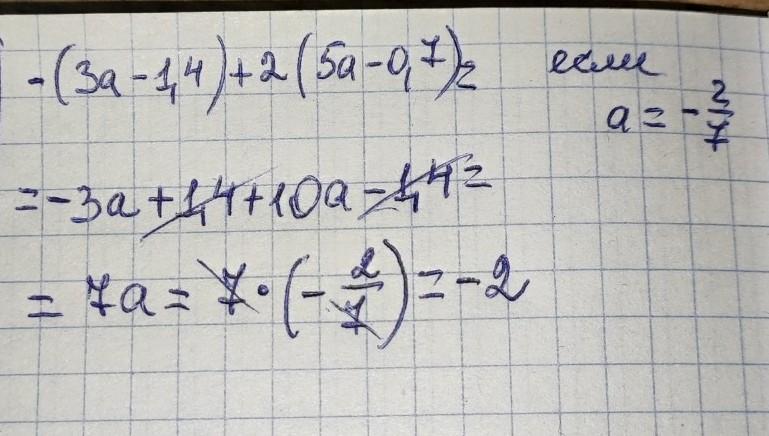 -(3a-1,4)+2(5a-0,7)= если
a=-2/7
=-3a+1,4+10a-1,4=
=7a=7·(-2/7)=-2